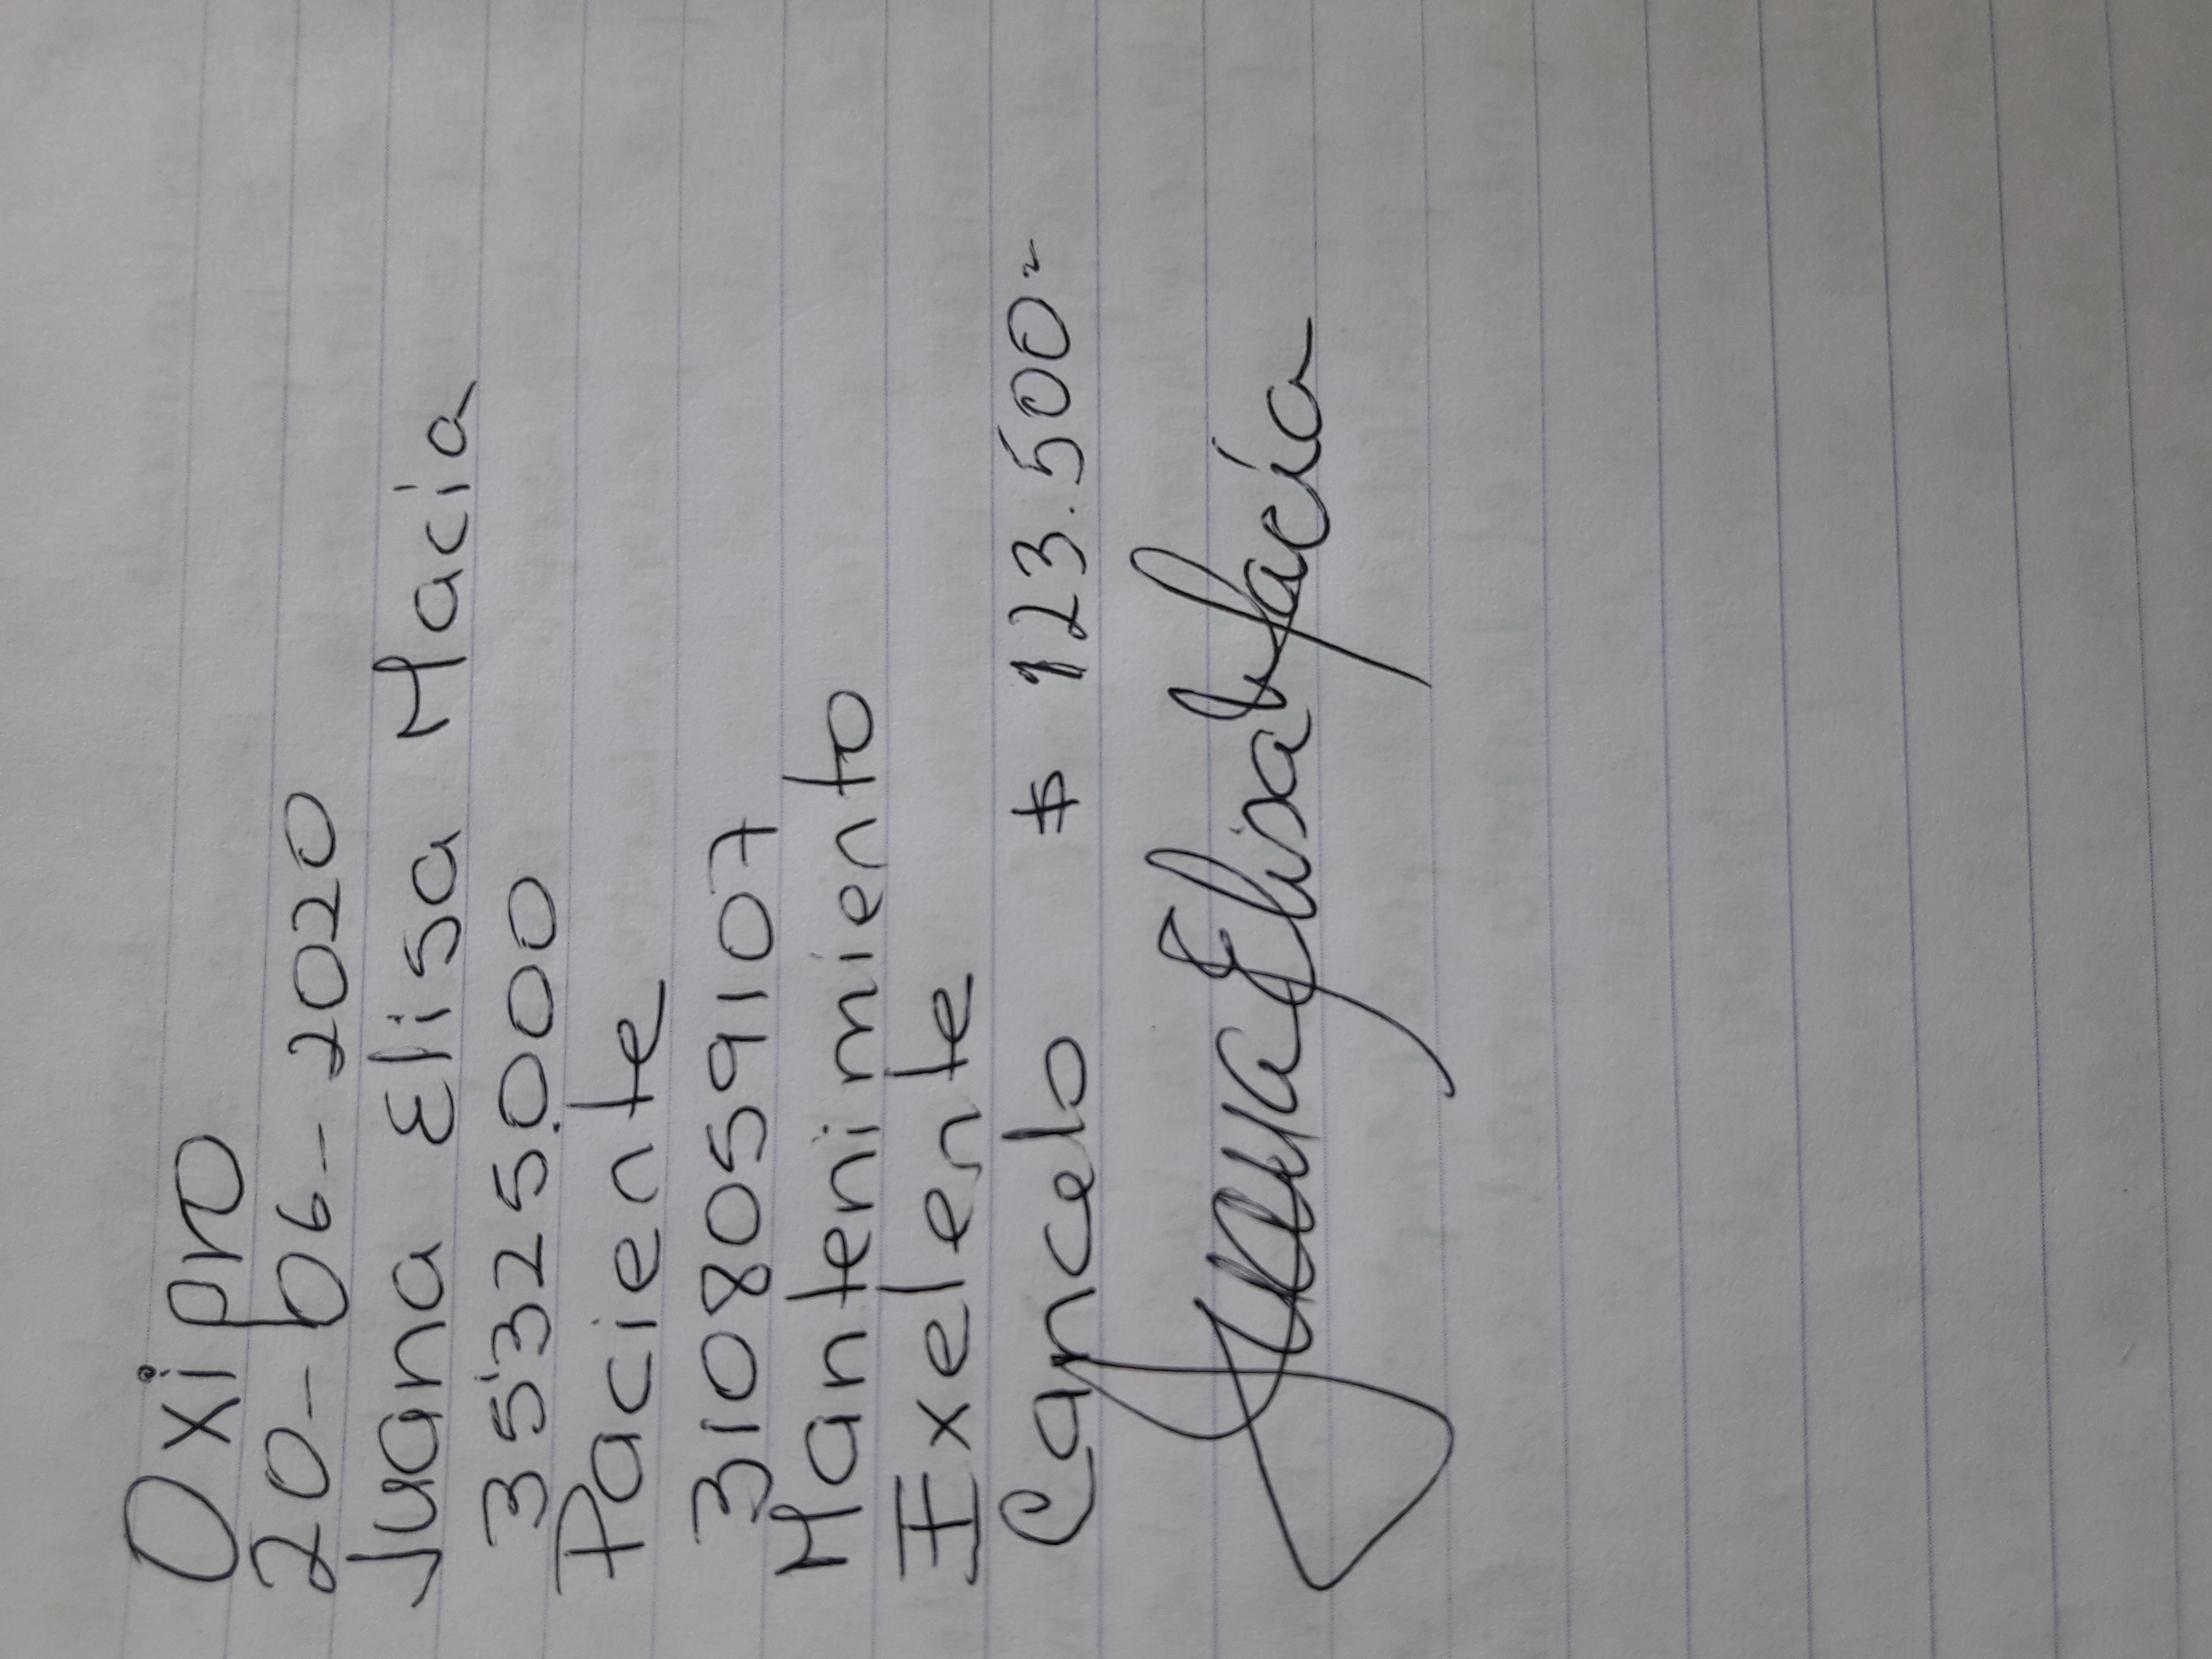 Oxipro
20-06-2020
Juana Elisa Macia
35'325.000
Paciente
3108059107
Mantenimiento
Exelente
Cancelo $ 123.500=
Juana Elisa Macía